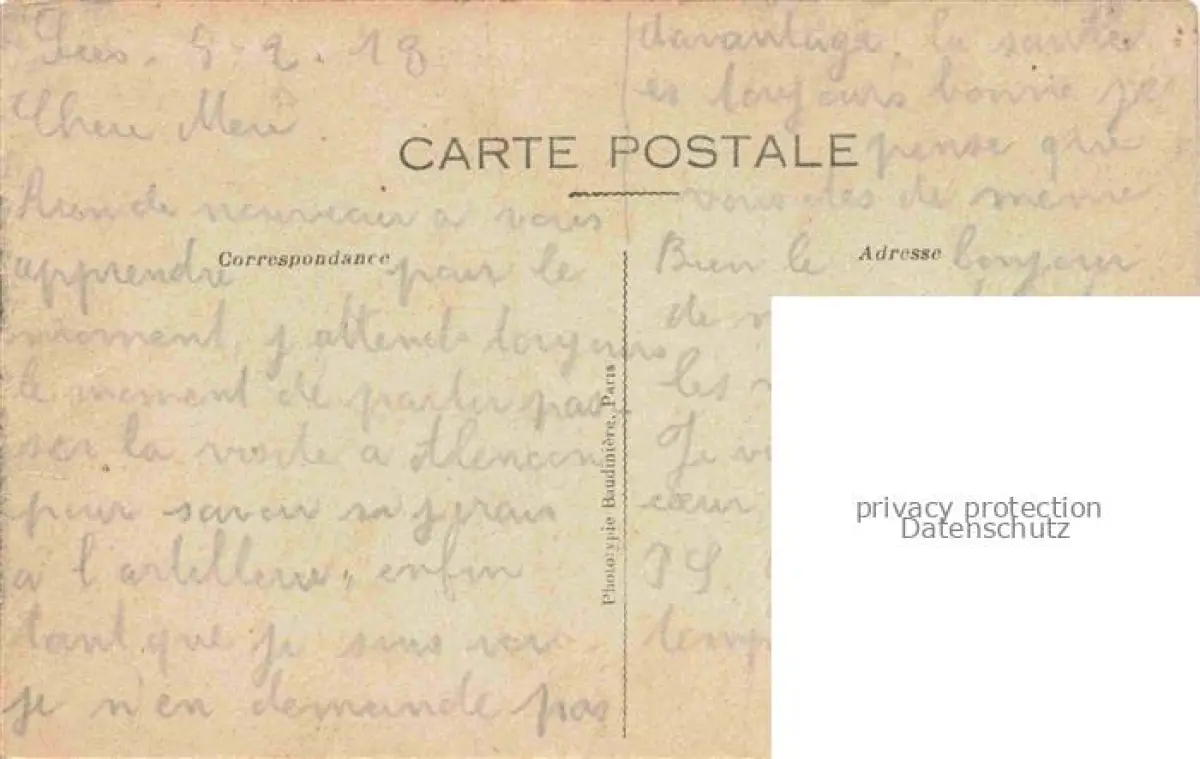 Sées. 5-2.18
Chere Mere.
CARTE POSTALE
Correspondance
Rien de nouveau a vous
apprendre pour le
moment, j attend toujours
le moment de partir
la visite a Alencon
pour savoir si j irais
a l'artillerie, enfin
tant que je suis
je n'en demande pas
Phototypie Baudinière, Paris
Adresse
davantage. la santé
es toujours bonne je
pense que
vous etes de meme
Bien le bonjour
de
les
Je
cœur
PS.
privacy protection
Datenschutz